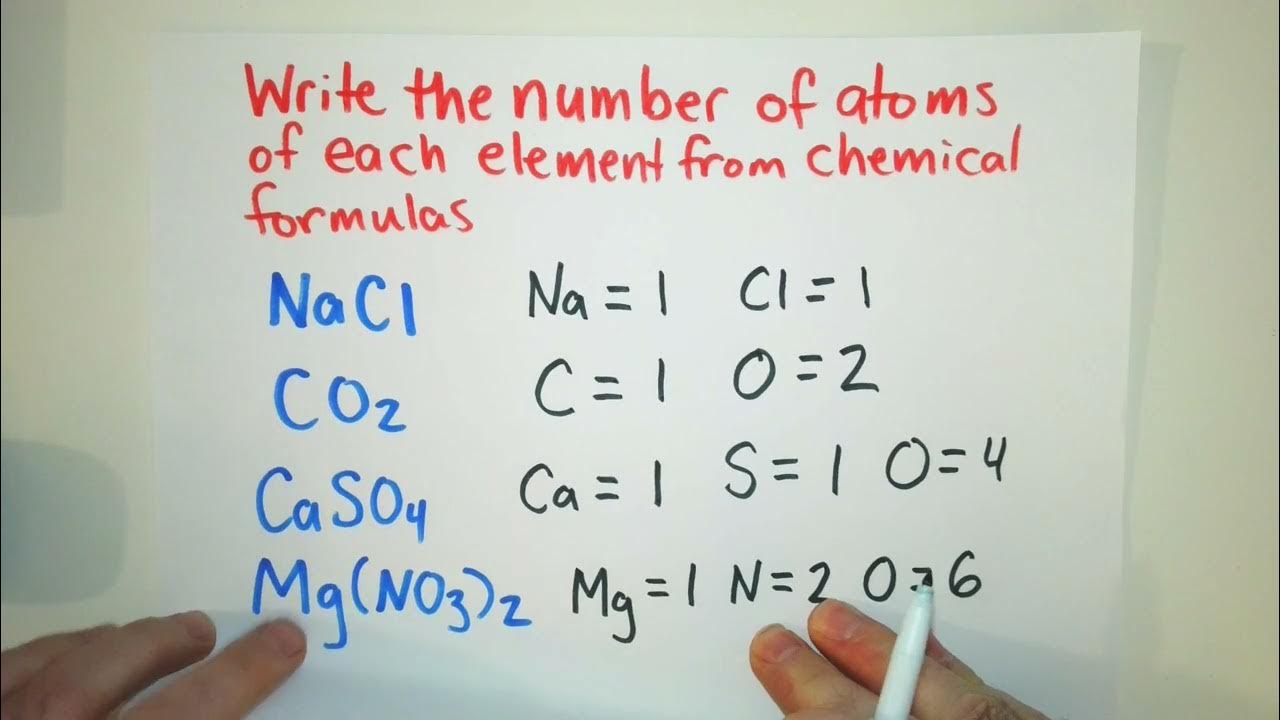 Write the number of atoms
of each element from chemical
formulas
NaCl Na = 1 Cl = 1
CO₂ C = 1 O = 2
CaSO₄ Ca = 1 S = 1 O = 4
Mg(NO₃)₂ Mg = 1 N = 2 O = 6